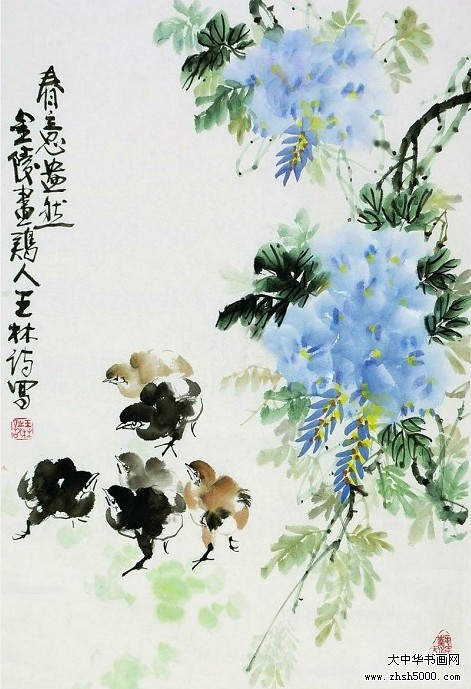 春意盎然
金陵画鸡人王林诗写
大中华书画网
www.zhsh5000.com